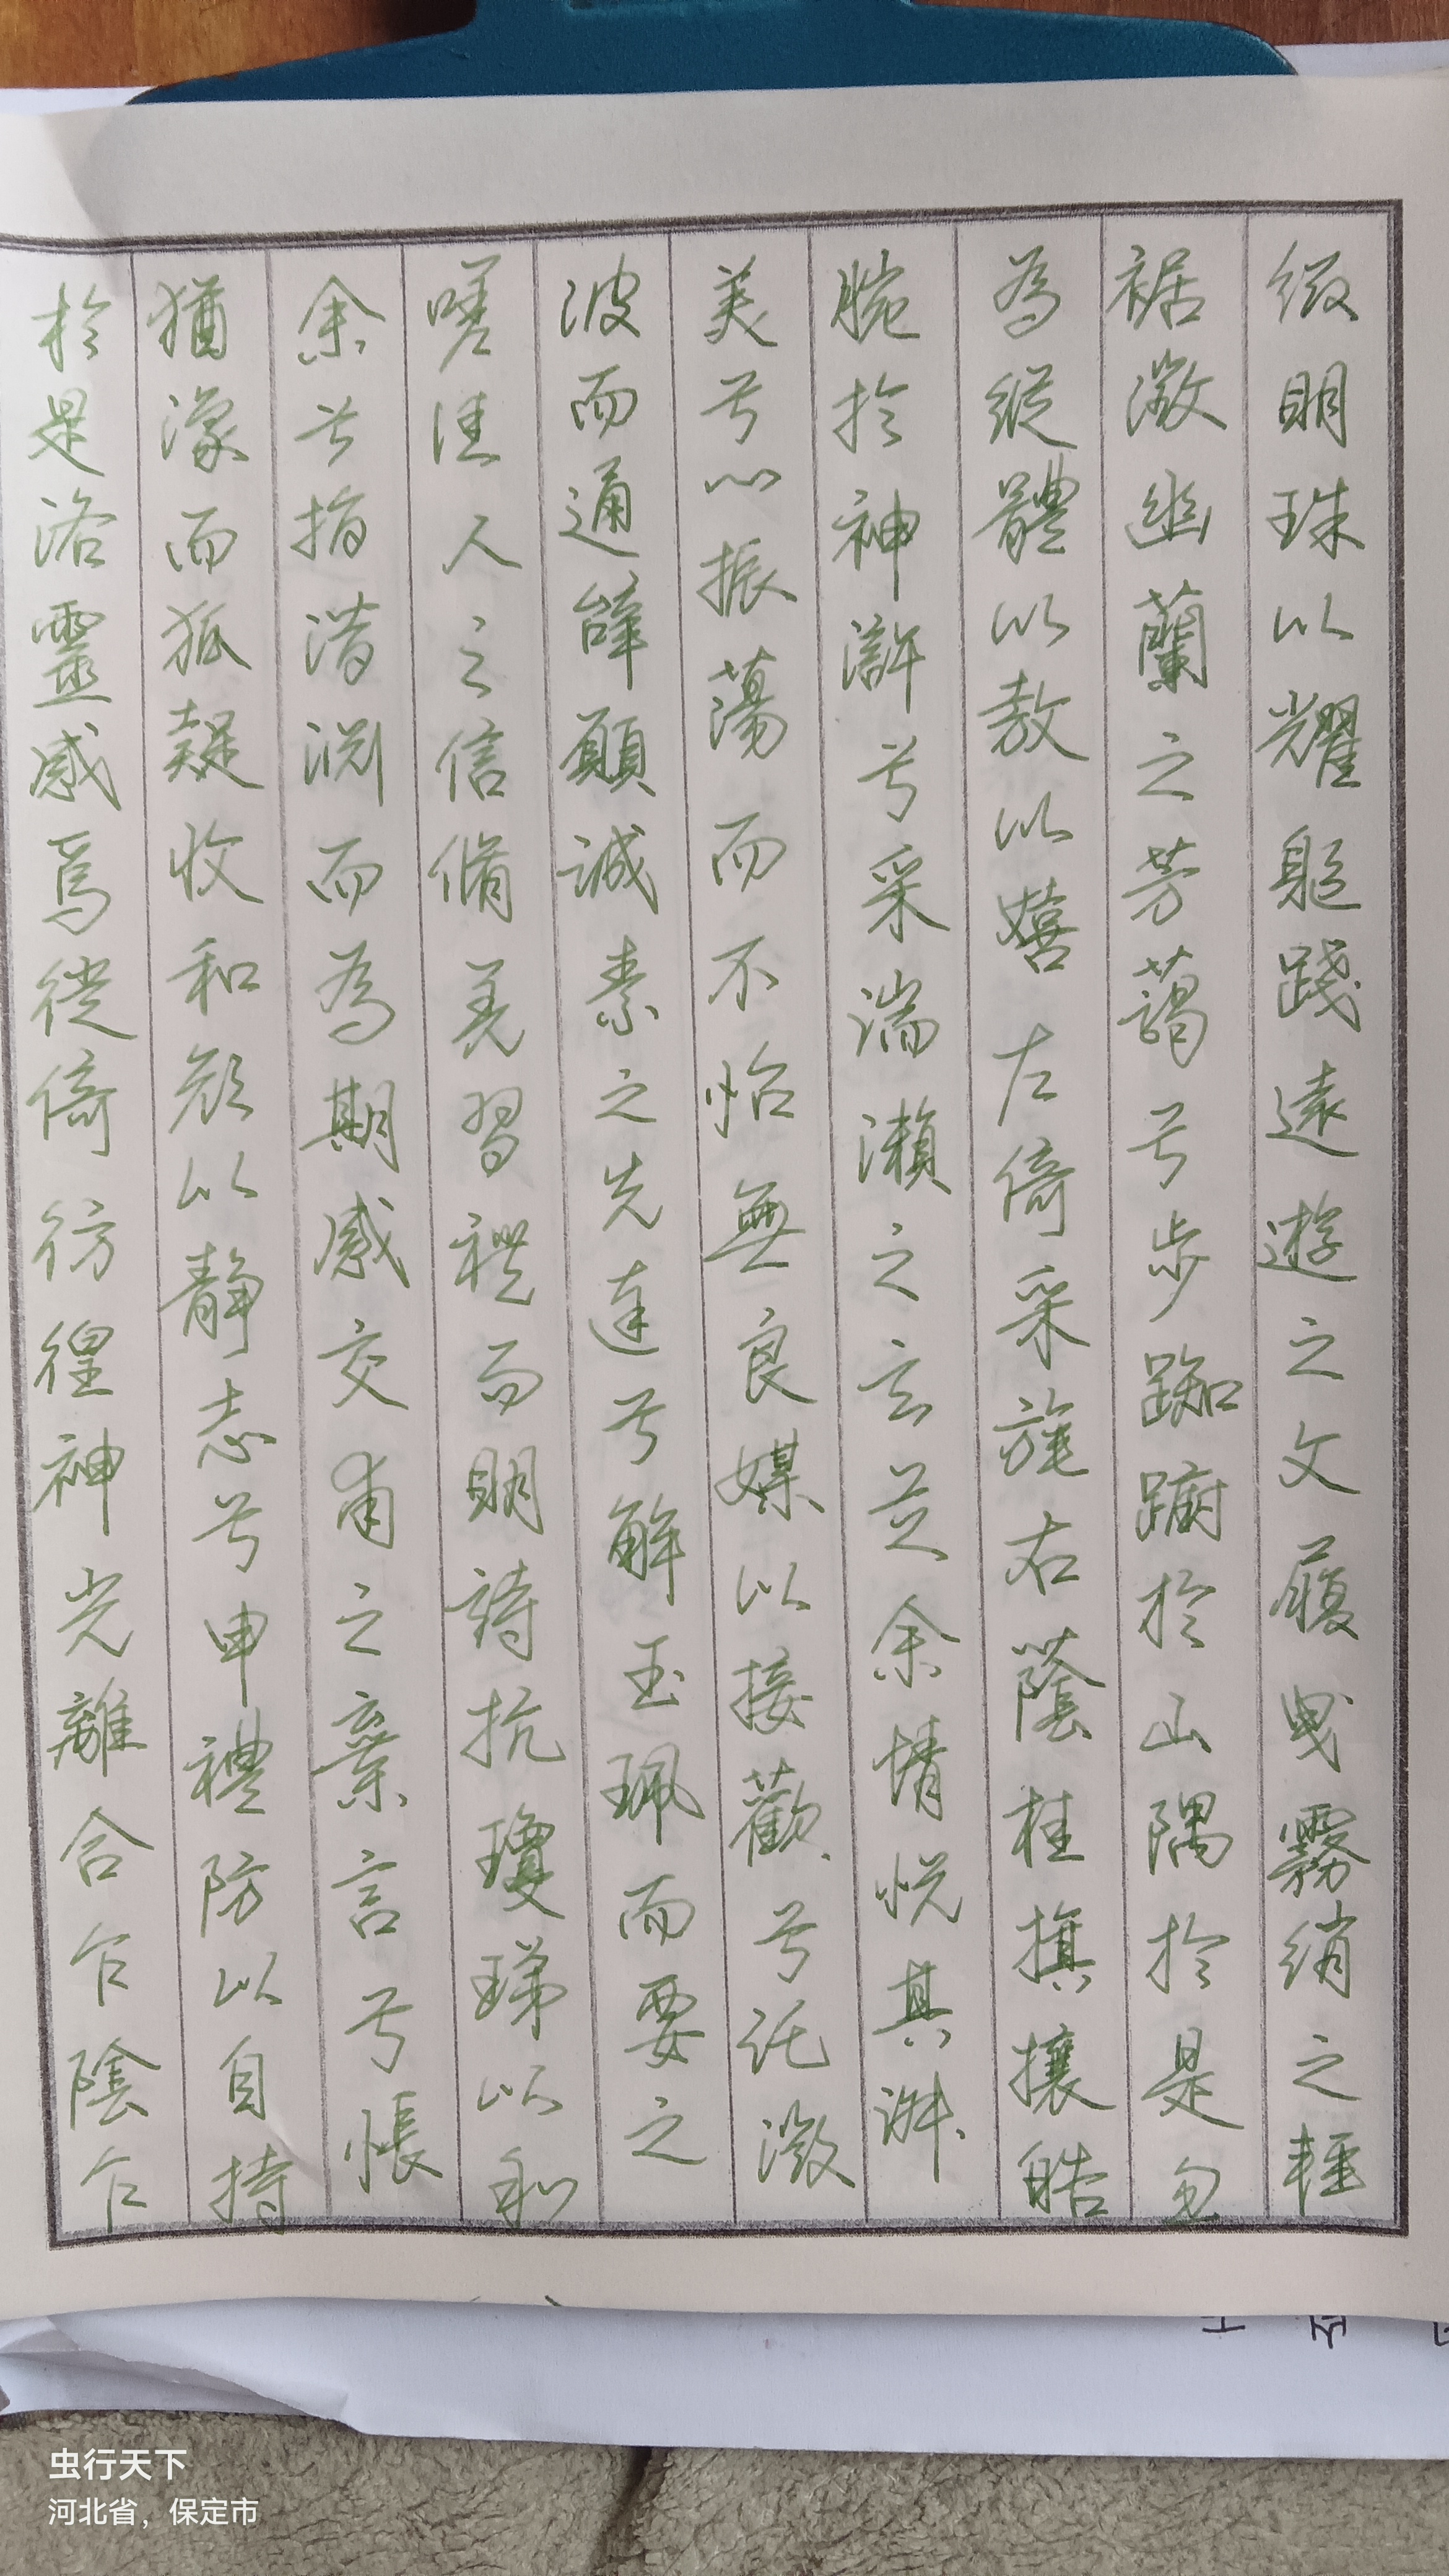 綴明珠以耀軀踐遠遊之文履曳霧綃之輕
裾微幽蘭之芳藹兮步踟躕於山隅於是忽
為縱體以敖以嬉左倚采旄右蔭桂旗攘皓
腕於神滸兮采湍瀨之玄芝余情悅其淑
美兮心振蕩而不怡無良媒以接歡兮託微
波而通辭願誠素之先達兮解玉珮而要之
嗟佳人之信脩羌習禮而明詩抗瓊珶以和
余兮指潛淵而為期感交甫之棄言兮悵
猶濠而狐疑收和顏以靜志兮申禮防以自持
於是洛靈感焉徙倚彷徨神光離合乍陰乍
虫行天下
河北省，保定市